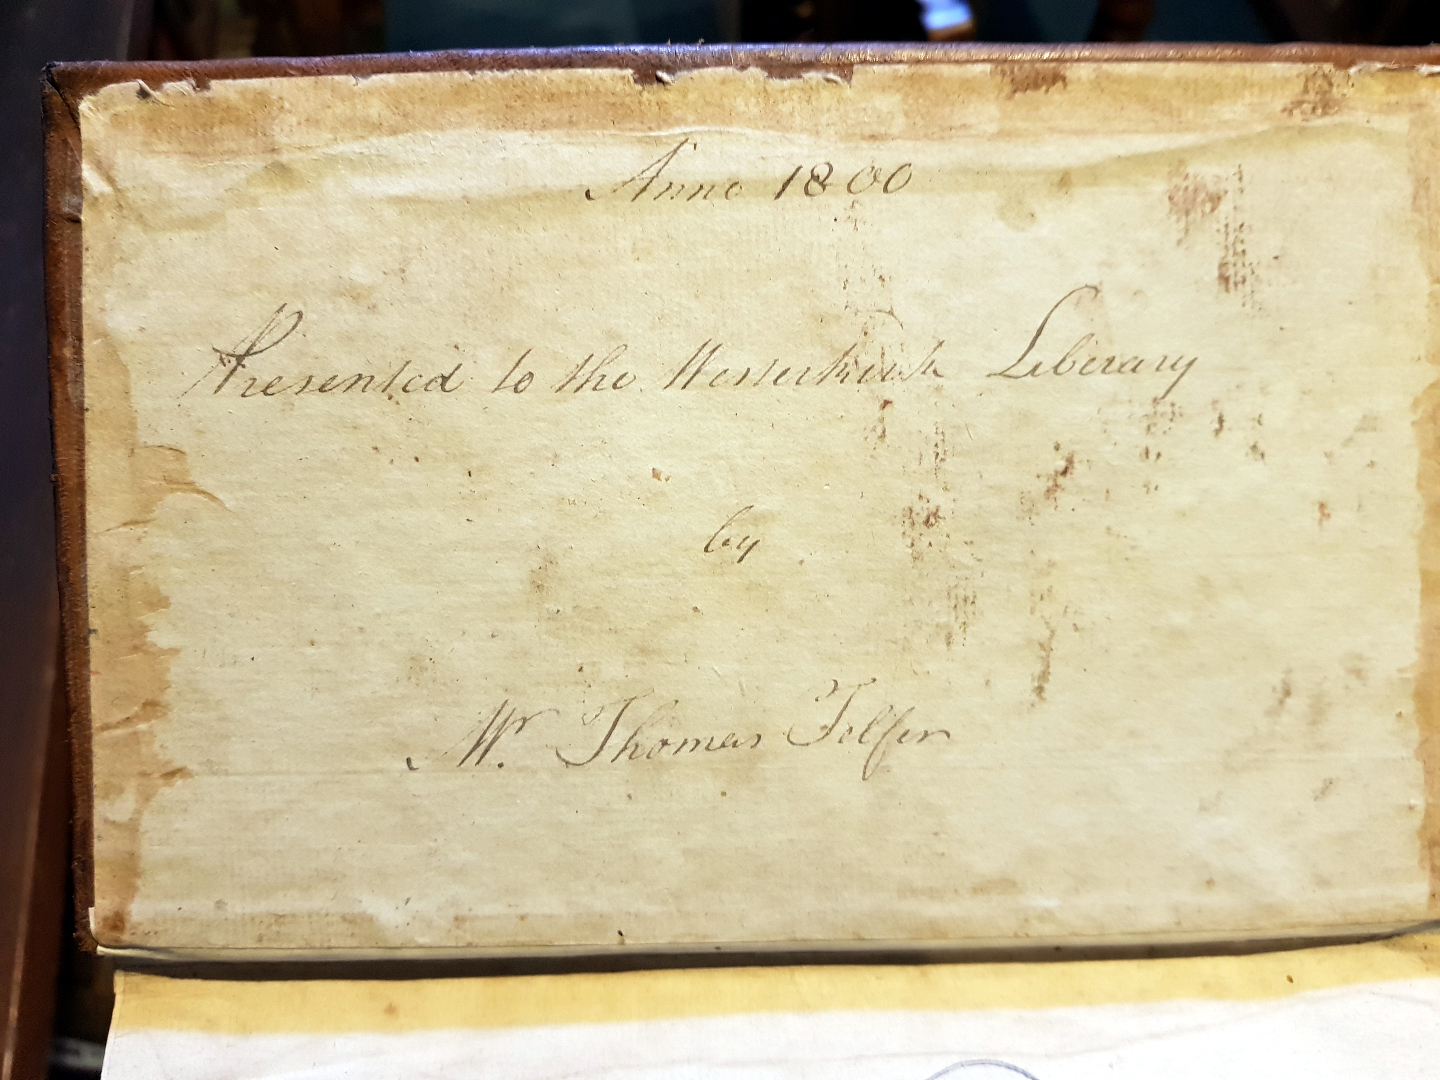 Anno 1800
Presented to the Westerkirk Liberary
by
Mr. Thomas Telfer